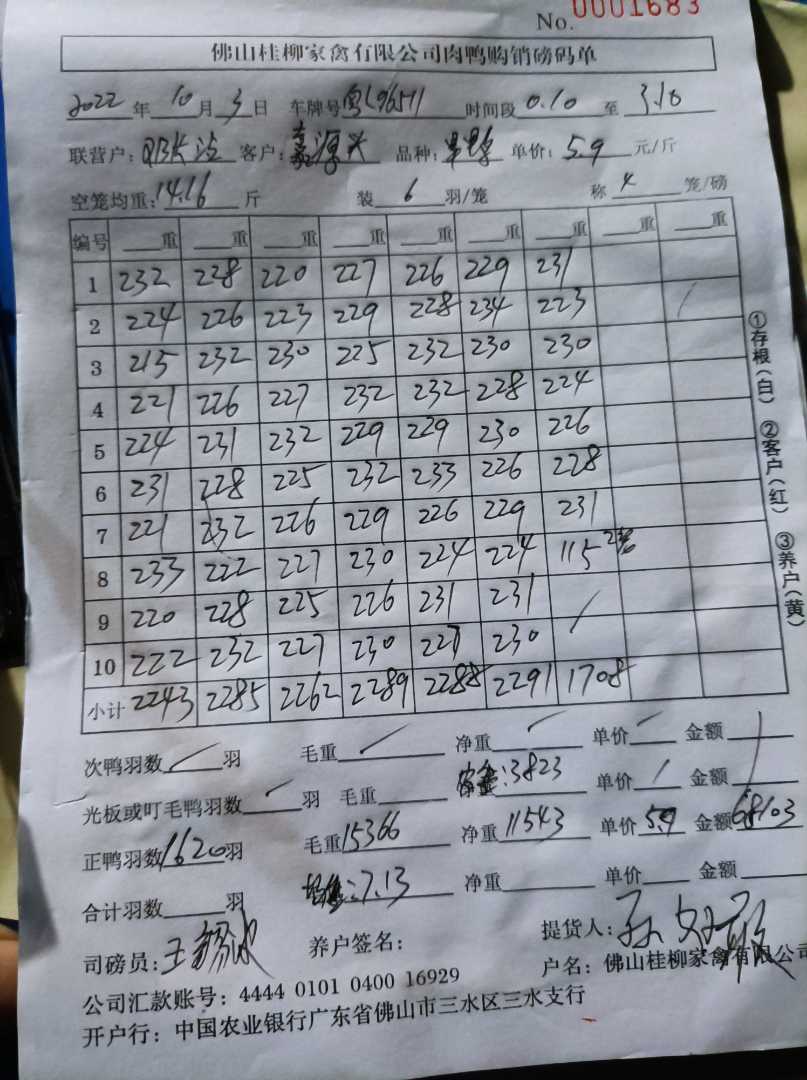 No. 0001683
佛山桂柳家禽有限公司肉鸭购销磅码单
2022 年 10 月 3 日 车牌号 粤L96511 时间段 0.10 至 3.10
联营户: 客户: 嘉源兴 品种: 单价: 5.9 元/斤
空笼均重: 14.16 斤 装 6 羽/笼 称 4 笼/磅
编号 重 重 重 重 重 重 重 重 重
1 232 228 220 227 226 229 231
2 224 226 223 229 228 234 223
3 215 232 230 225 232 230 230
4 221 226 227 232 232 228 224
5 224 231 232 229 229 230 226
6 231 228 225 232 233 226 228
7 221 232 226 229 226 229 231
8 233 222 227 230 224 224 115
9 220 228 225 226 231 231
10 222 232 227 230 227 230
小计 2243 2285 2262 2289 2288 2291 1708
①存根(白) ②客户(红) ③养户(黄)
次鸭羽数 羽 毛重 净重 单价 金额
光板或叮毛鸭羽数 羽 毛重 : 3823 单价 金额
正鸭羽数 1620 羽 毛重 15366 净重 11543 单价 5.9 金额 68103
合计羽数 羽 : 7.13 净重 单价 金额
司磅员: 王 养户签名: 提货人: 孙
公司汇款账号: 4444 0101 0400 16929 户名: 佛山桂柳家禽有限公司
开户行: 中国农业银行广东省佛山市三水区三水支行